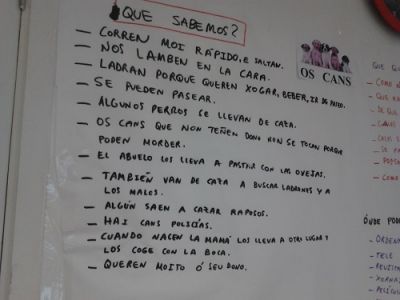 ¿QUE SABEMOS?
— CORREN MOI RÁPIDO, E SALTAN.
— NOS LAMBEN EN LA CARA.
— LADRAN PORQUE QUEREN XOGAR, BEBER, IR DE PASEO.
— SE PUEDEN PASEAR.
— ALGUNOS PERROS SE LLEVAN DE CAZA.
— OS CANS QUE NON TEÑEN DONO NON SE TOCAN PORQUE
PODEN MORDER.
— EL ABUELO LOS LLEVA A PASTAR CON LAS OVEJAS.
— TAMBIÉN VAN DE CAZA A BUSCAR LADRONES Y A
LOS MALOS.
— ALGÚN SAEN A CAZAR RAPOSOS.
— HAI CANS POLICÍAS.
— CUANDO NACEN LA MAMÁ LOS LLEVA A OTRO LUGAR Y
LOS COGE CON LA BOCA.
— QUEREN MOITO Ó SEU DONO.
OS CANS
QUE
— COMO
— QUE
— DE QUE
— COMO
ÓNDE PODE
— ORDENA
— TELE
— REVISTA
— XORNAI
— PELÍCUL